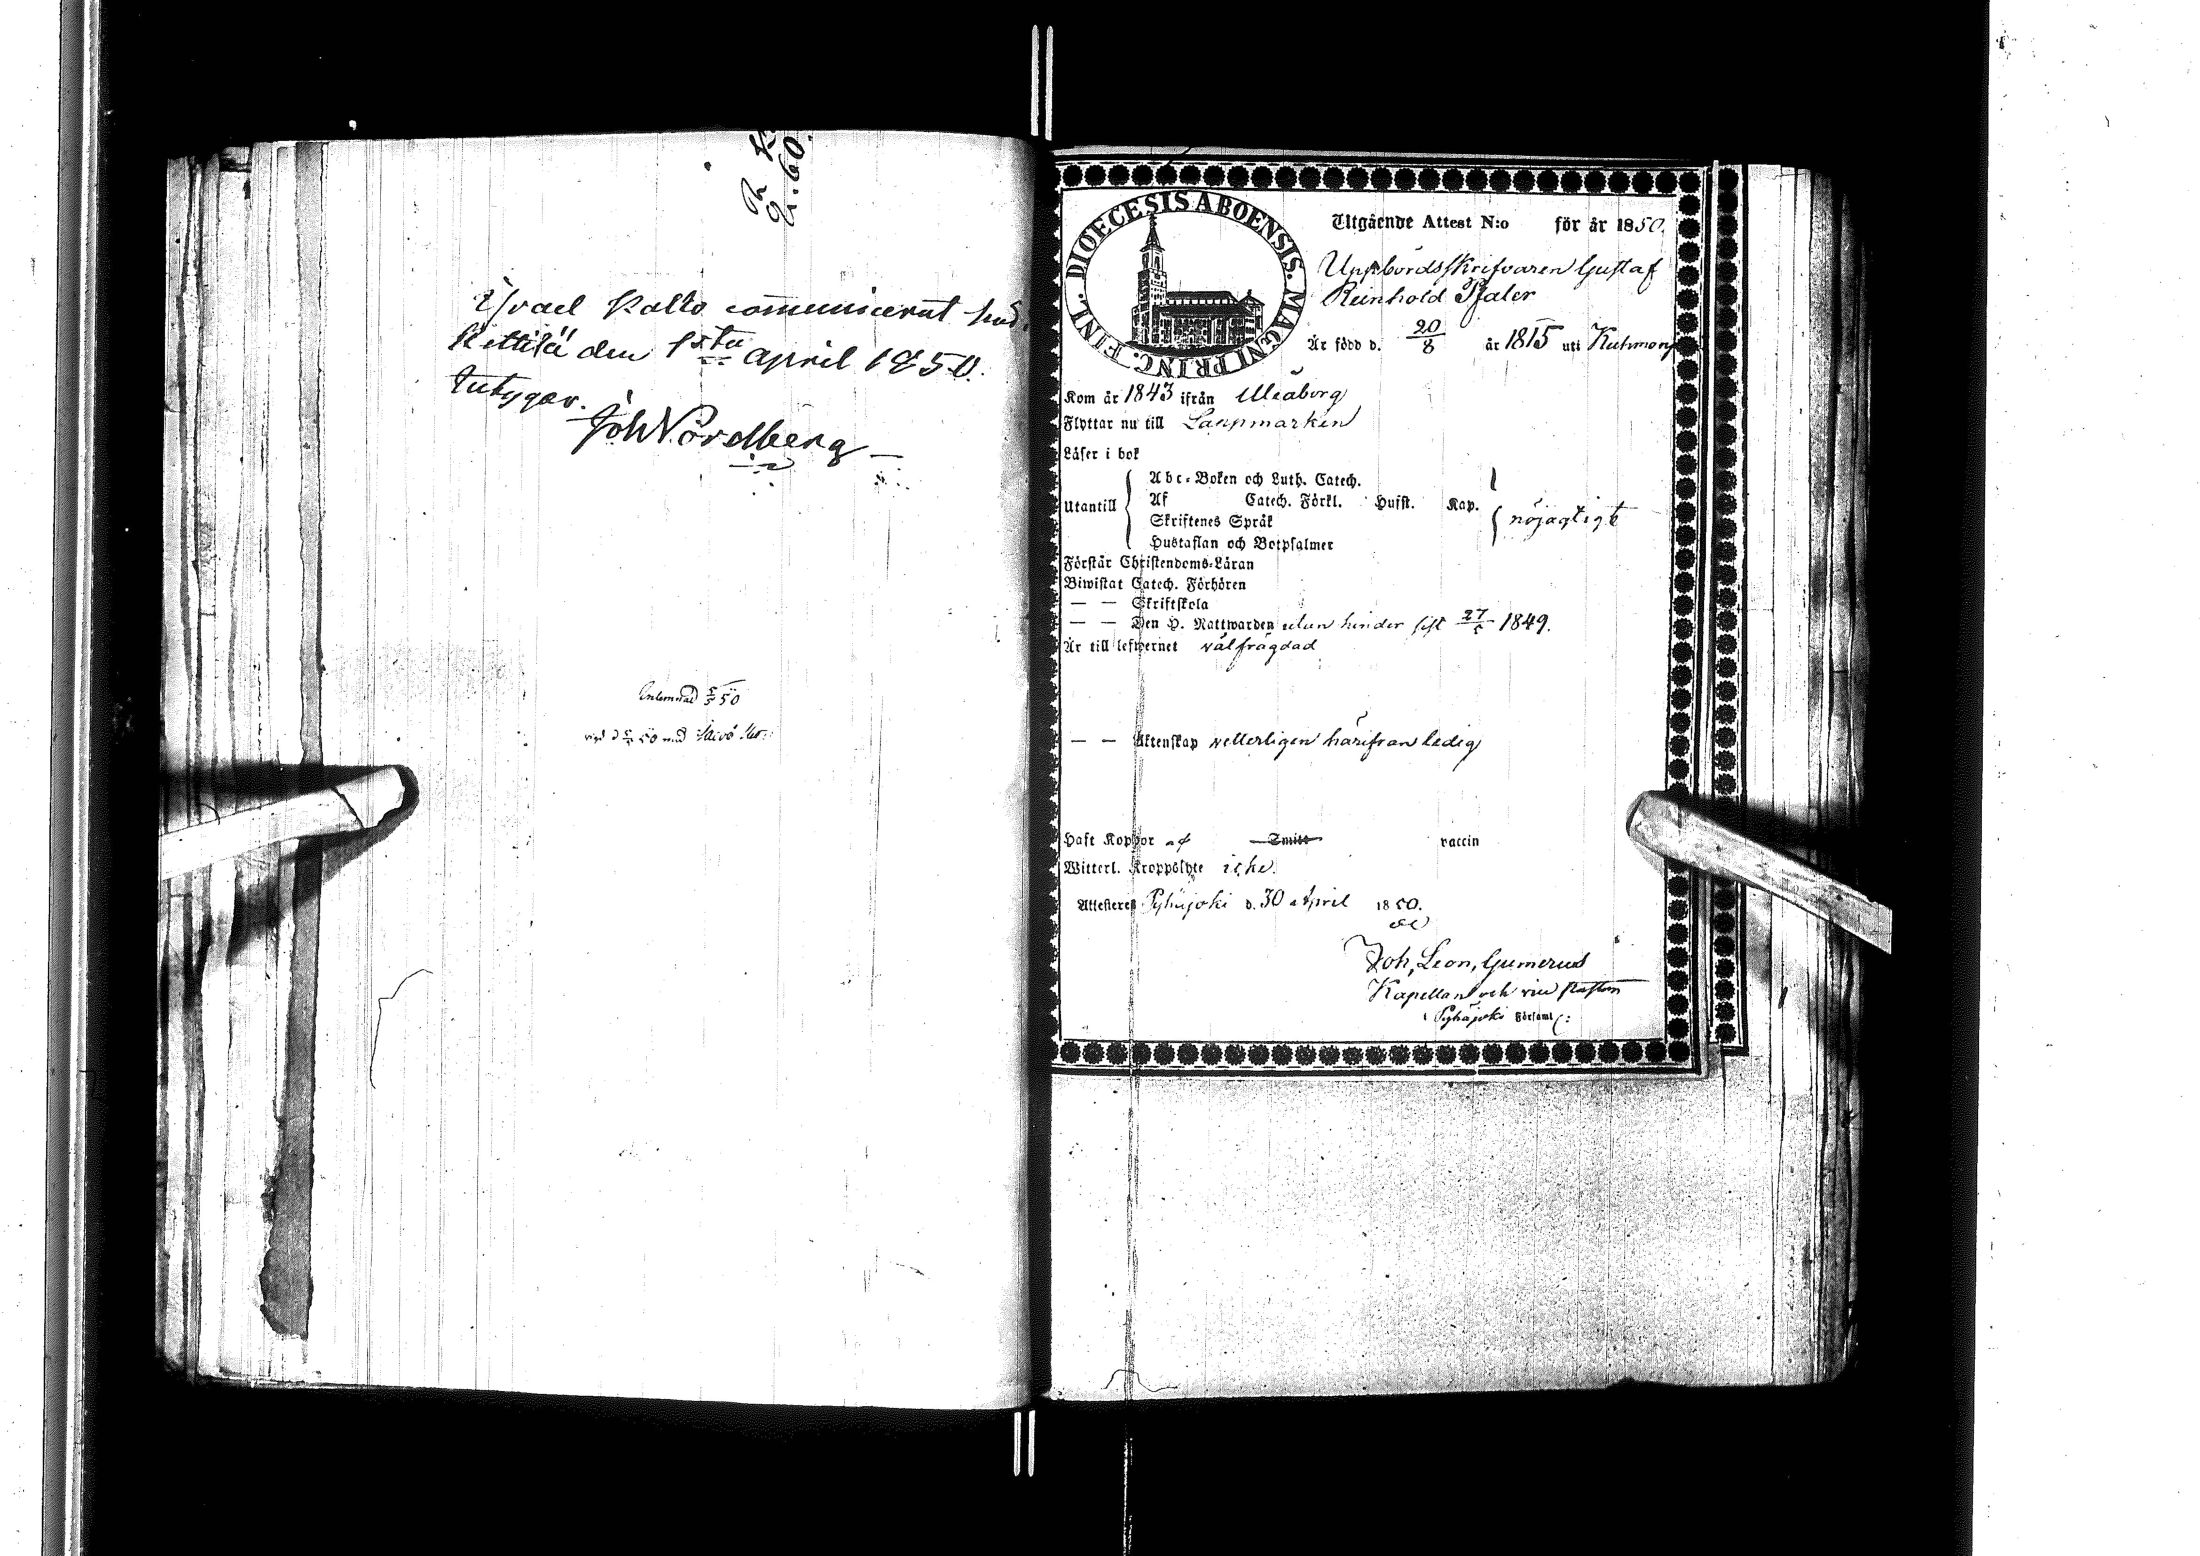 Israel Kalto communicerat
Kittilä den 1sta April 1850.
intygar.
Joh Nordberg
50
DIOECESIS ABOENSIS. MAGNI PRINC. FINL.
Utgående Attest N:o för år 1850.
Uppbördsskrifvaren Gustaf
Reinhold Pfaler
Är född d. 20/8 år 1815 uti Kuhmo
Kom år 1843 ifrån Uleåborg
Flyttar nu till Lappmarken
Läser i bok
Utantill
Abc-Boken och Luth. Catech.
Af Catech. Förkl. Hufst. Kap.
Skriftenes Språk
Hustaflan och Botpsalmer
nöjagtigt
Förstår Christendoms-Läran
Biwistat Catech. Förhören
— — Skriftskola
— — Den H. Nattwarden utan hinder sist 27/5 1849.
Är till lefwernet välfrägdad
— — Äktenskap vetterligen härifrån ledig
Haft Koppor af Smitt vaccin
Witterl. Kroppslyte icke.
Attesteres Pyhäjoki d. 30 April 1850.
Joh. Leon. Gumerus
Kapellan och vice Pastor
i Pyhäjoki Församl: